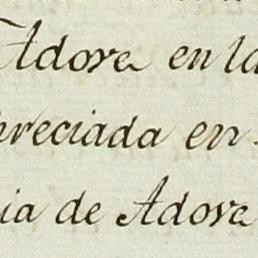 Adora en la
preciada en
ia de Adora